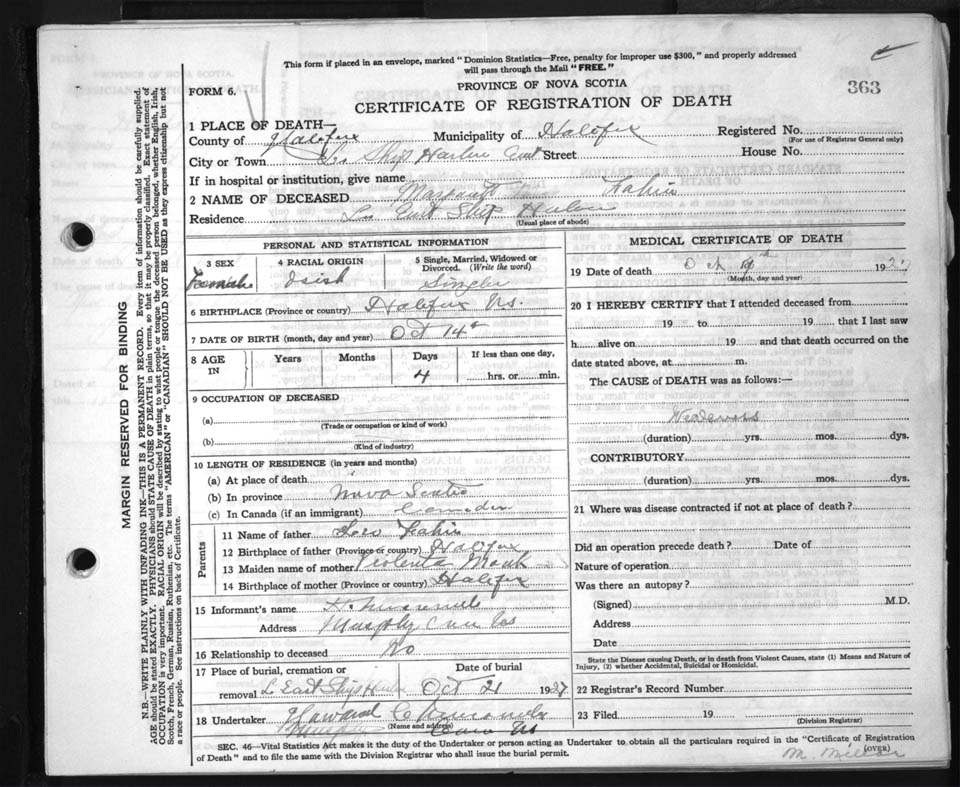 This form if placed in an envelope, marked "Dominion Statistics—Free, penalty for improper use $300," and properly addressed
will pass through the Mail "FREE."
FORM 6.
PROVINCE OF NOVA SCOTIA
363
CERTIFICATE OF REGISTRATION OF DEATH
1 PLACE OF DEATH—
County of Halifax Municipality of Halifax Registered No.
(For use of Registrar General only)
City or Town Ship Harbor East Street House No.
If in hospital or institution, give name
2 NAME OF DECEASED Margarett Fahie
Residence East Ship Harbor
(Usual place of abode)
PERSONAL AND STATISTICAL INFORMATION
3 SEX
Female
4 RACIAL ORIGIN
Irish
5 Single, Married, Widowed or
Divorced. (Write the word)
Single
6 BIRTHPLACE (Province or country) Halifax Ns.
7 DATE OF BIRTH (month, day and year) Oct 14
8 AGE IN
Years Months Days If less than one day,
4 hrs. or min.
9 OCCUPATION OF DECEASED
(a)
(Trade or occupation or kind of work)
(b)
(Kind of industry)
10 LENGTH OF RESIDENCE (in years and months)
(a) At place of death
(b) In province Nova Scotia
(c) In Canada (if an immigrant) Canada
Parents
11 Name of father Leo Fahie
12 Birthplace of father (Province or country) Halifax
13 Maiden name of mother Violenta
14 Birthplace of mother (Province or country) Halifax
15 Informant's name
Address Murphy Cove
16 Relationship to deceased No
17 Place of burial, cremation or
removal L East Ship Date of burial Oct 21 1927
18 Undertaker Howard C
(Name and address)
MEDICAL CERTIFICATE OF DEATH
19 Date of death 192
(Month, day and year)
20 I HEREBY CERTIFY that I attended deceased from
19 to 19 that I last saw
h alive on 19 and that death occurred on the
date stated above, at m.
The CAUSE of DEATH was as follows:—
Weakness
(duration) yrs. mos. dys.
CONTRIBUTORY
(duration) yrs. mos. dys.
21 Where was disease contracted if not at place of death?
Did an operation precede death? Date of
Nature of operation
Was there an autopsy?
(Signed) M.D.
Address
Date
State the Disease causing Death, or in death from Violent Causes, state (1) Means and Nature of
Injury, (2) whether Accidental, Suicidal or Homicidal.
22 Registrar's Record Number
23 Filed 19
(Division Registrar)
SEC. 46—Vital Statistics Act makes it the duty of the Undertaker or person acting as Undertaker to obtain all the particulars required in the "Certificate of Registration
of Death" and to file the same with the Division Registrar who shall issue the burial permit.
(OVER)
M. Millar
MARGIN RESERVED FOR BINDING
N.B.—WRITE PLAINLY WITH UNFADING INK—THIS IS A PERMANENT RECORD. Every item of information should be carefully supplied.
AGE should be stated EXACTLY. PHYSICIANS should STATE CAUSE OF DEATH in plain terms, so that it may be properly classified. Exact statement of
OCCUPATION is very important. RACIAL ORIGIN will be described by stating to what people or tongue the deceased person belonged, whether English, Irish,
Scotch, French, German, Russian, Ruthenian, etc. The terms "AMERICAN" or "CANADIAN" SHOULD NOT BE USED as they express citizenship but not
a race or people. See instructions on back of Certificate.